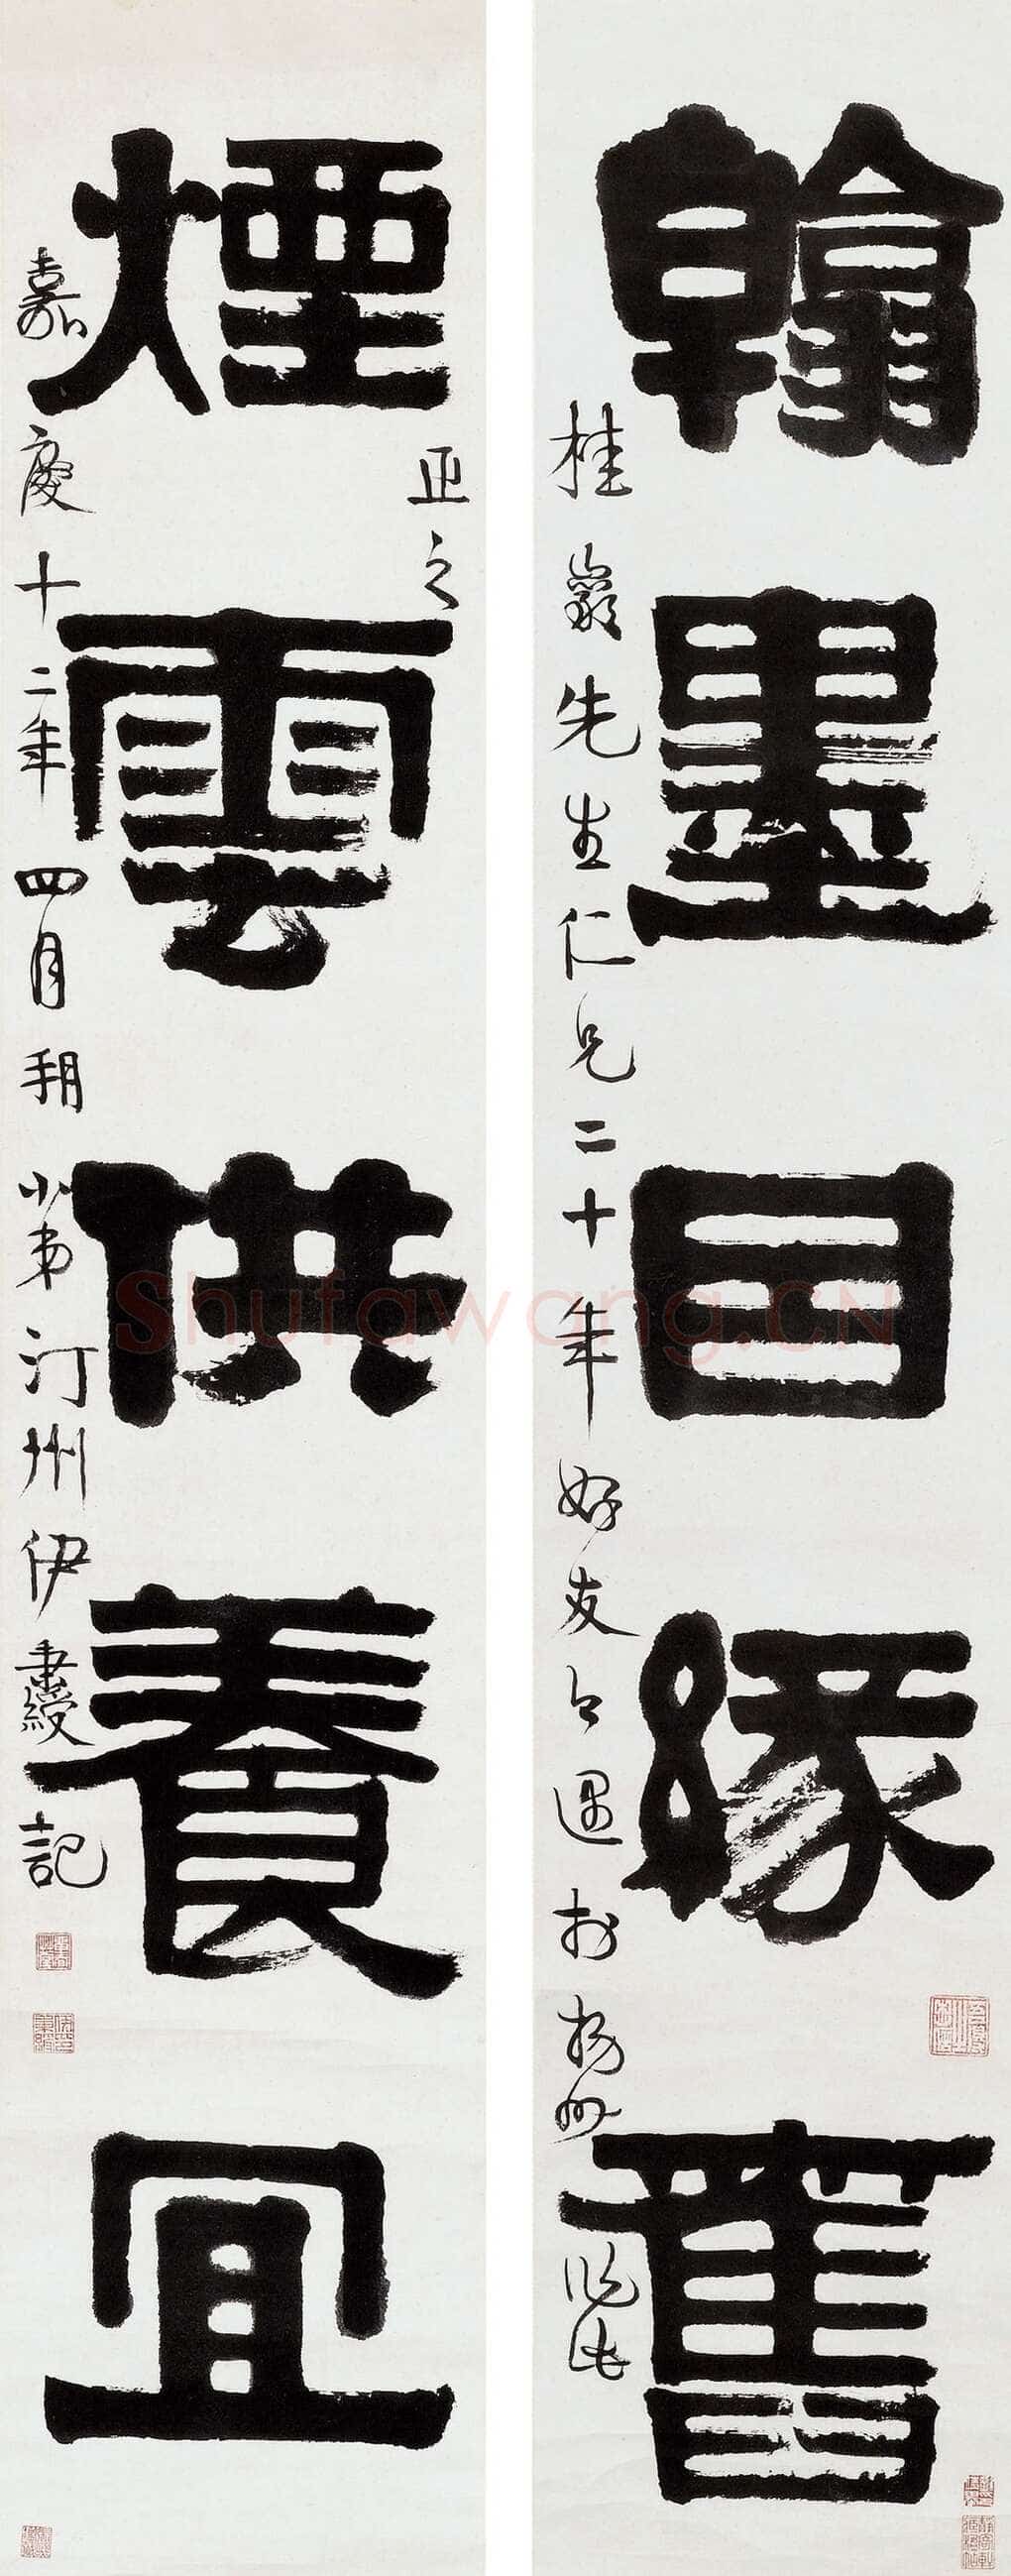 翰墨因緣舊
桂巖先生仁兄二十年好友今遇於揚州
正之
煙雲供養宜
嘉慶十二年四月朔 小弟汀州伊秉綬記
Shufawang.CN